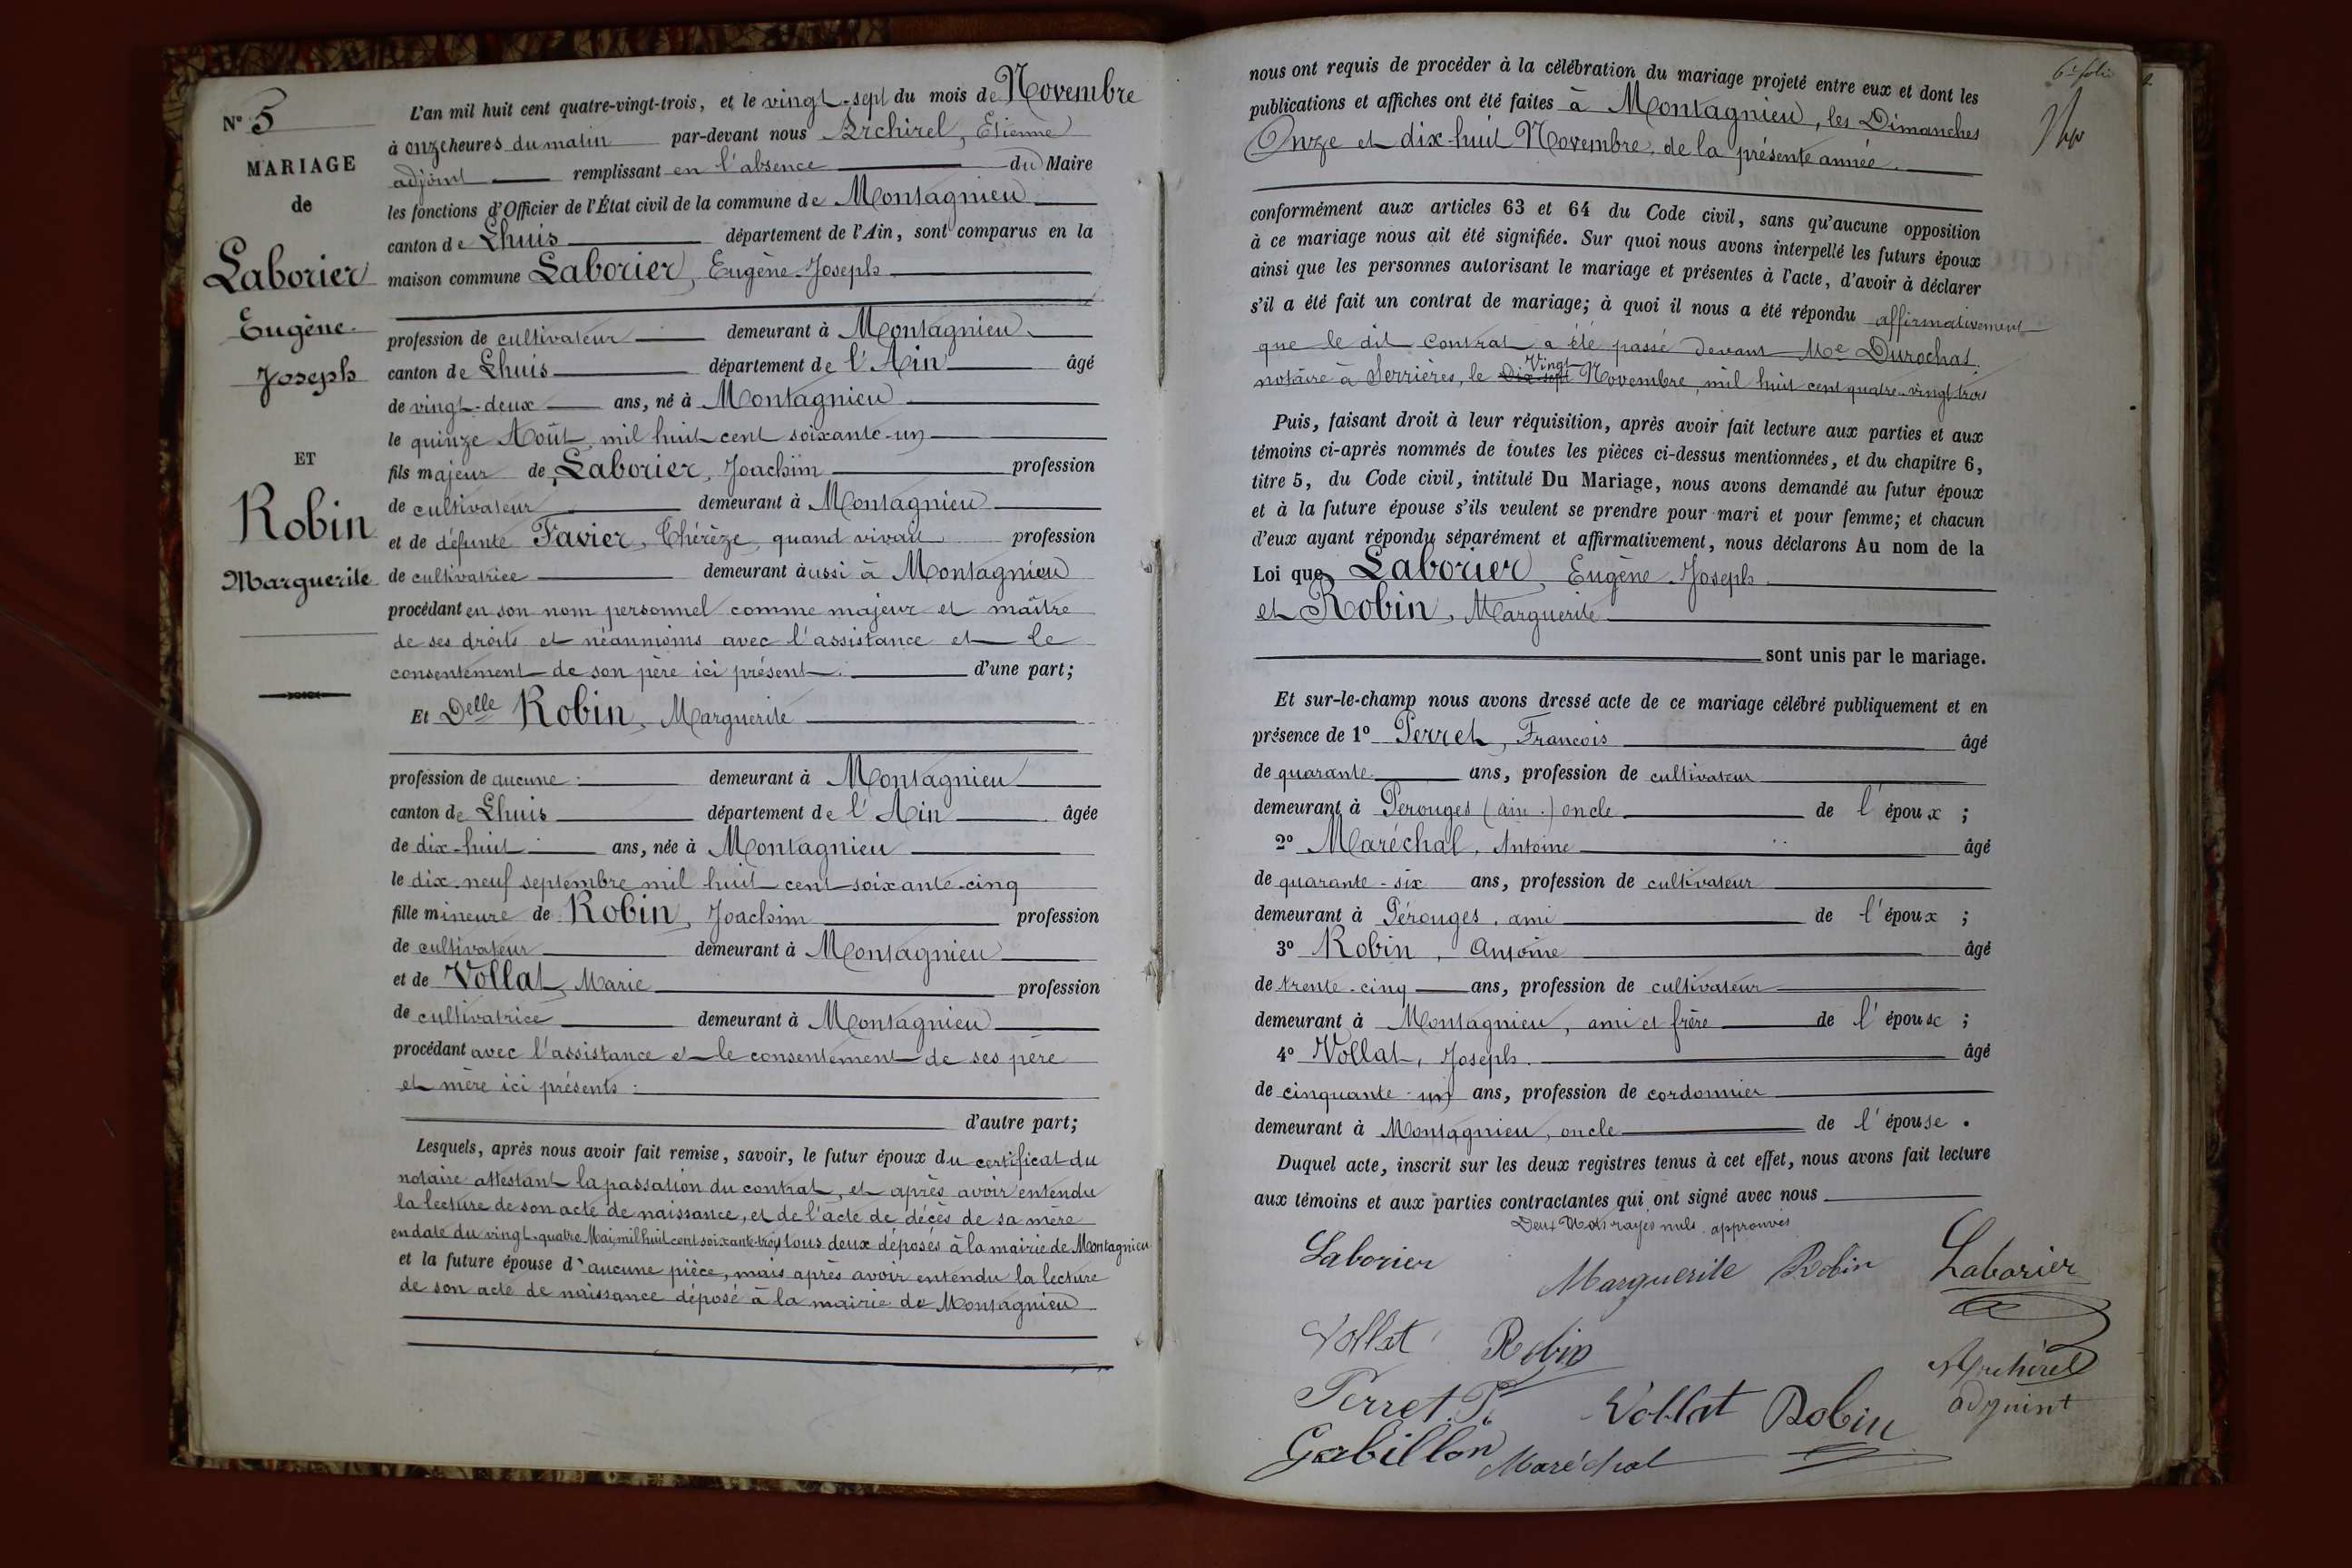 N° 5
MARIAGE
de
Laborier
Eugène
Joseph
ET
Robin
Marguerite
L'an mil huit cent quatre-vingt-trois, et le vingt-sept du mois de Novembre
à onze heures du matin par-devant nous Archirel, Etienne
adjoint remplissant en l'absence du Maire
les fonctions d'Officier de l'État civil de la commune de Montagnieu
canton de Lhuis département de l'Ain, sont comparus en la
maison commune Laborier, Eugène-Joseph
profession de cultivateur demeurant à Montagnieu
canton de Lhuis département de l'Ain âgé
de vingt-deux ans, né à Montagnieu
le quinze Août mil huit cent soixante-un
fils majeur de Laborier, Joachim profession
de cultivateur demeurant à Montagnieu
et de défunte Favier, Thérèze, quand vivait profession
de cultivatrice demeurant aussi à Montagnieu
procédant en son nom personnel comme majeur et maître
de ses droits et néanmoins avec l'assistance et le
consentement de son père ici présent. d'une part;
Et Delle Robin, Marguerite
profession de aucune demeurant à Montagnieu
canton de Lhuis département de l'Ain âgée
de dix-huit ans, née à Montagnieu
le dix-neuf septembre mil huit cent soixante-cinq
fille mineure de Robin, Joachim profession
de cultivateur demeurant à Montagnieu
et de Vollat, Marie profession
de cultivatrice demeurant à Montagnieu
procédant avec l'assistance et le consentement de ses père
et mère ici présents :
d'autre part;
Lesquels, après nous avoir fait remise, savoir, le futur époux du certificat du
notaire attestant la passation du contrat, et après avoir entendu
la lecture de son acte de naissance, et de l'acte de décès de sa mère
en date du vingt-quatre Mai mil huit cent soixante-trois, tous deux déposés à la mairie de Montagnieu
et la future épouse d'aucune pièce, mais après avoir entendu la lecture
de son acte de naissance déposé à la mairie de Montagnieu
nous ont requis de procéder à la célébration du mariage projeté entre eux et dont les
publications et affiches ont été faites à Montagnieu, les Dimanches
Onze et dix-huit Novembre de la présente année.
conformément aux articles 63 et 64 du Code civil, sans qu'aucune opposition
à ce mariage nous ait été signifiée. Sur quoi nous avons interpellé les futurs époux
ainsi que les personnes autorisant le mariage et présentes à l'acte, d'avoir à déclarer
s'il a été fait un contrat de mariage; à quoi il nous a été répondu affirmativement
que le dit contrat a été passé devant Me Durochat
notaire à Serrières, le Dix-sept Vingt Novembre, mil huit cent quatre-vingt-trois
Puis, faisant droit à leur réquisition, après avoir fait lecture aux parties et aux
témoins ci-après nommés de toutes les pièces ci-dessus mentionnées, et du chapitre 6,
titre 5, du Code civil, intitulé Du Mariage, nous avons demandé au futur époux
et à la future épouse s'ils veulent se prendre pour mari et pour femme; et chacun
d'eux ayant répondu séparément et affirmativement, nous déclarons Au nom de la
Loi que Laborier, Eugène-Joseph
et Robin, Marguerite
sont unis par le mariage.
Et sur-le-champ nous avons dressé acte de ce mariage célébré publiquement et en
présence de 1° Perret, Francois âgé
de quarante ans, profession de cultivateur
demeurant à Perouges (ain.) oncle de l'époux ;
2° Maréchal, Antoine âgé
de quarante-six ans, profession de cultivateur
demeurant à Pérouges, ami de l'époux ;
3° Robin, Antoine âgé
de trente-cinq ans, profession de cultivateur
demeurant à Montagnieu, ami et frère de l'épouse ;
4° Vollat, Joseph. âgé
de cinquante-un ans, profession de cordonnier
demeurant à Montagnieu, oncle de l'épouse.
Duquel acte, inscrit sur les deux registres tenus à cet effet, nous avons fait lecture
aux témoins et aux parties contractantes qui ont signé avec nous
Deux Mots rayés nuls approuvés
Laborier Marguerite Robin Laborier
Vollat Robin
Archirel
adjoint
Perret. F. Vollat Robin
Gabillon Maréchal